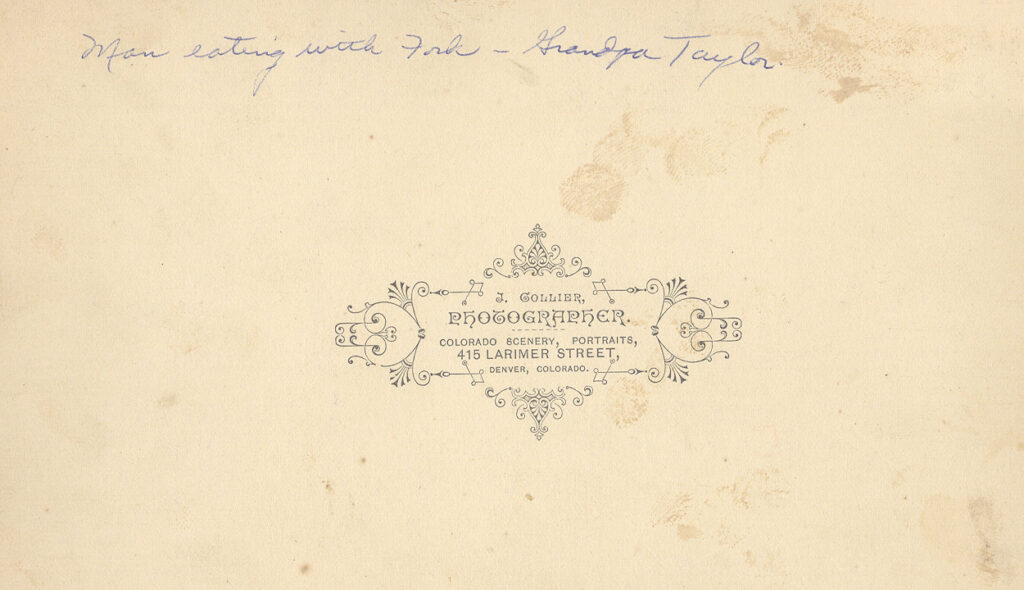 Man eating with Fork - Grandpa Taylor.
J. COLLIER,
PHOTOGRAPHER.
COLORADO SCENERY, PORTRAITS,
415 LARIMER STREET,
DENVER, COLORADO.